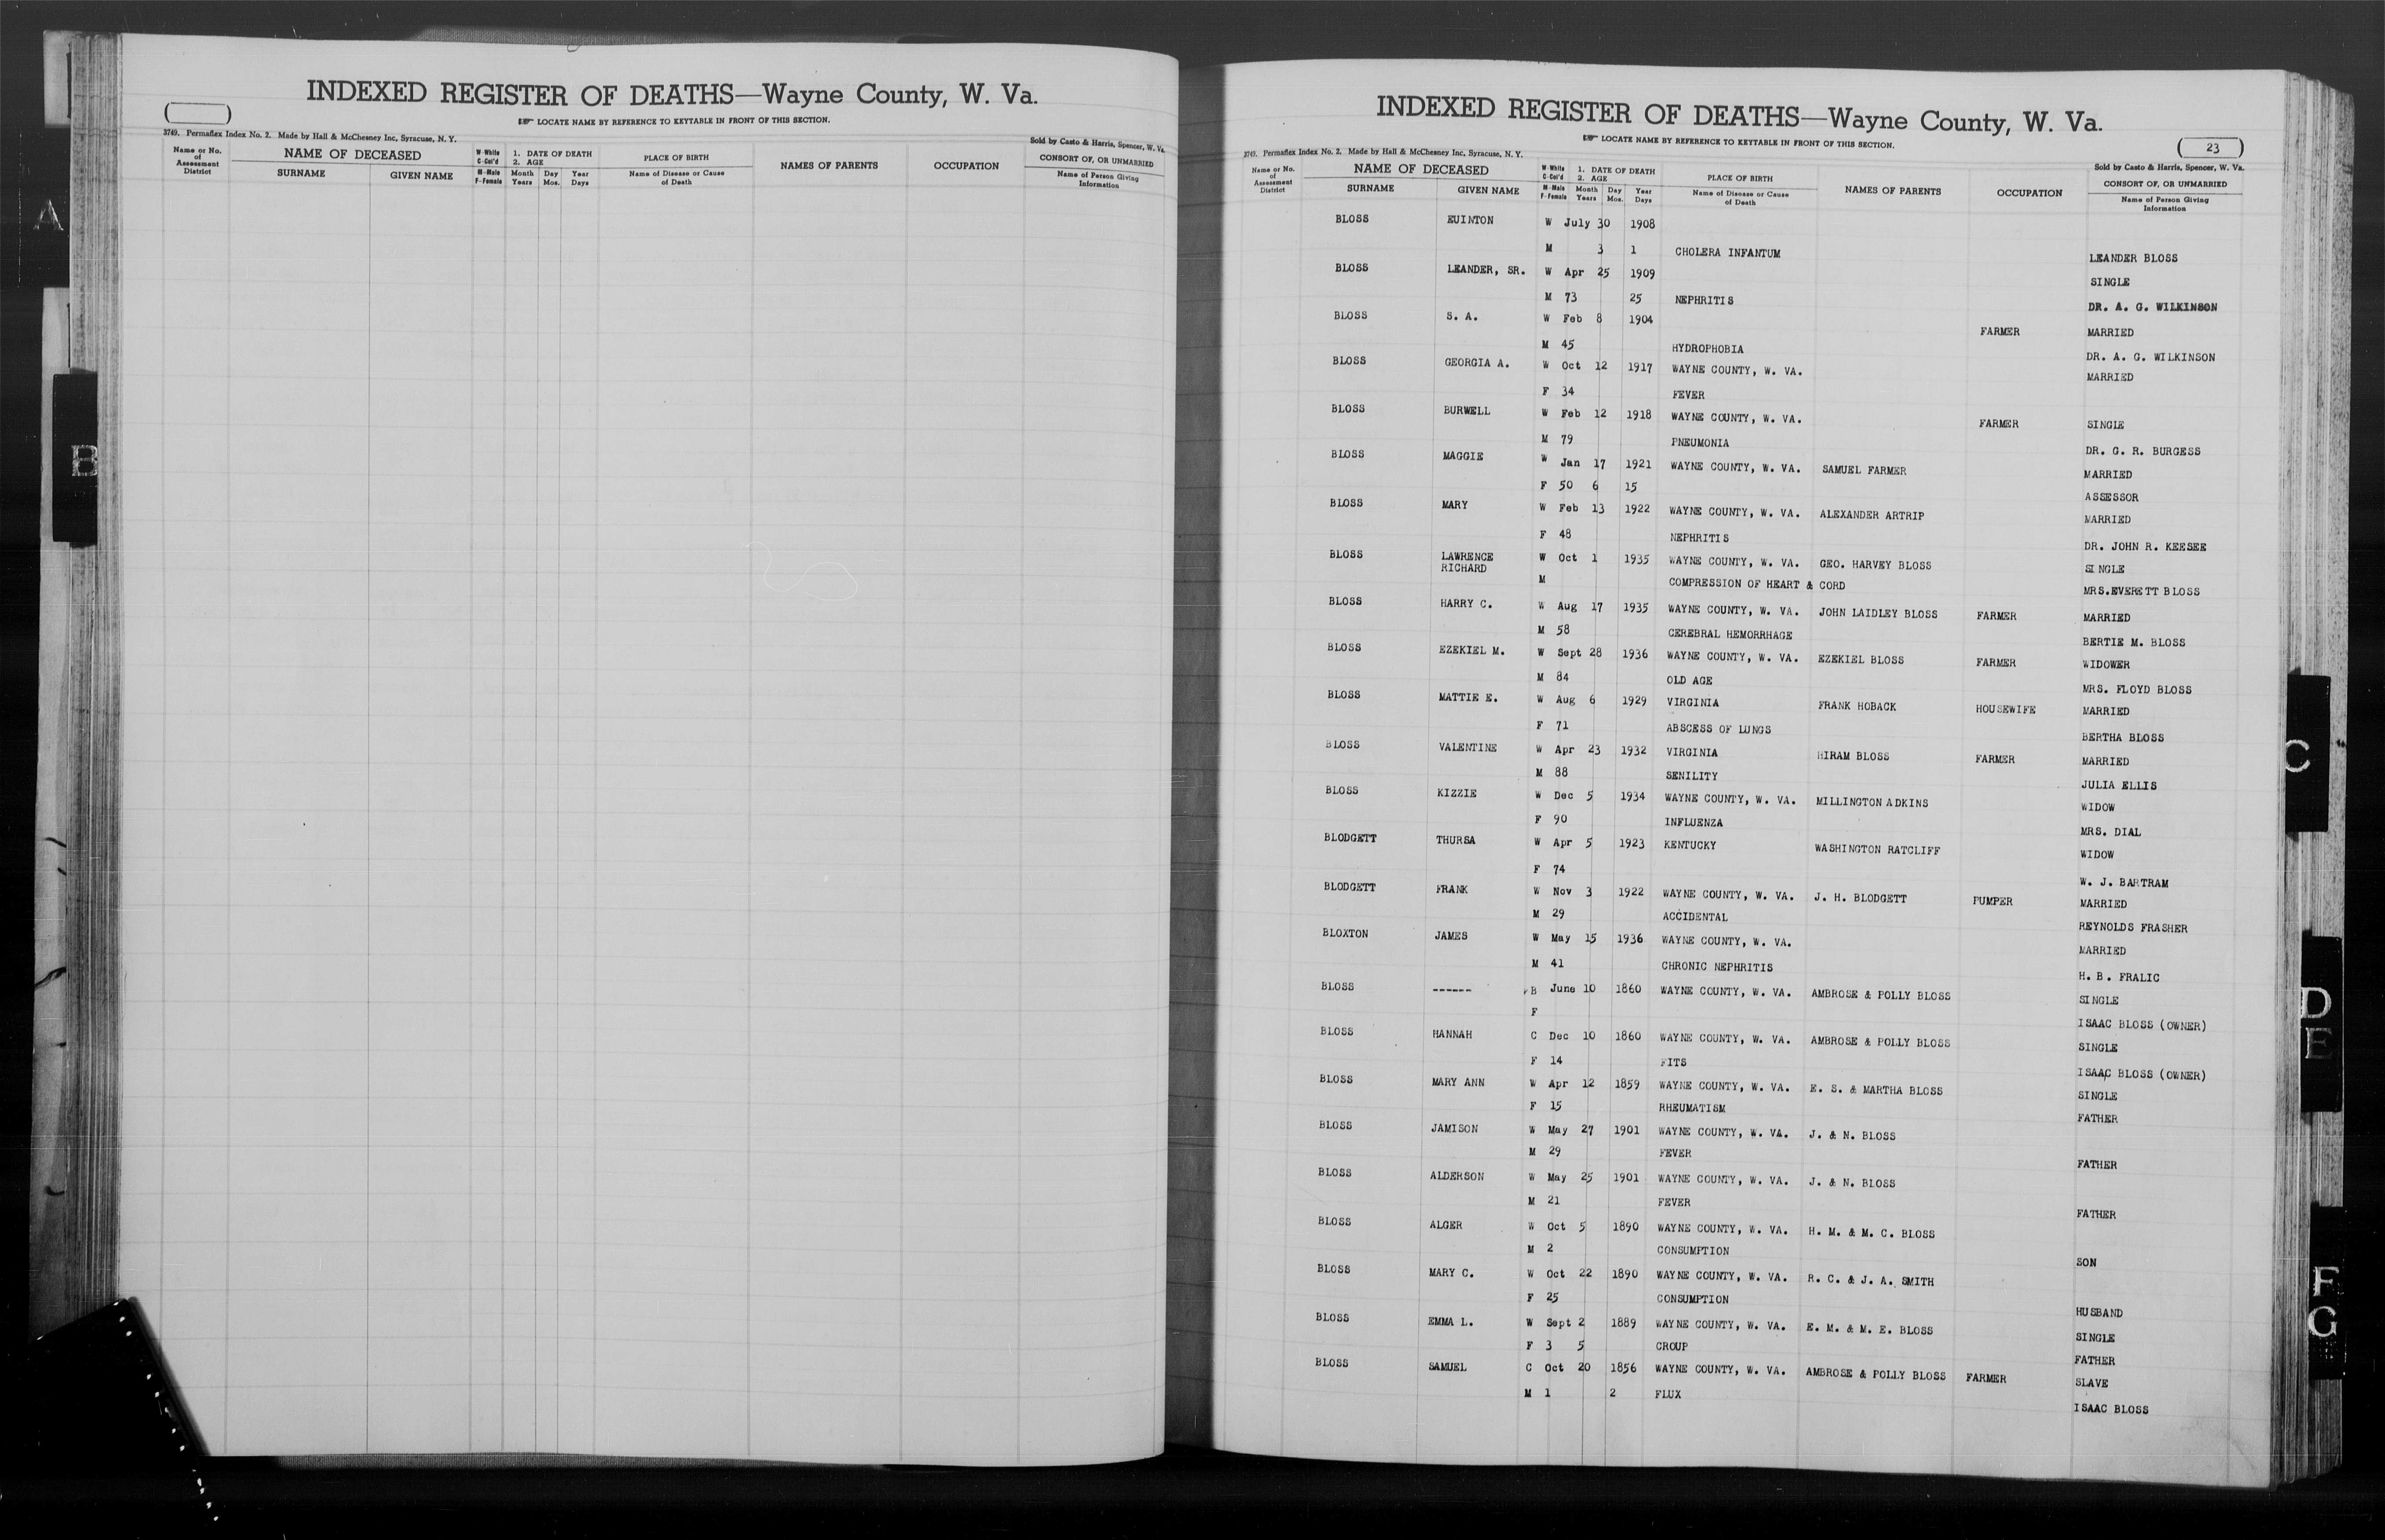 INDEXED REGISTER OF DEATHS—Wayne County, W. Va.
LOCATE NAME BY REFERENCE TO KEYTABLE IN FRONT OF THIS SECTION.
3749. Permaflex Index No. 2. Made by Hall & McChesney Inc, Syracuse, N. Y.
Sold by Casto & Harris, Spencer, W. Va.
Name or No. of Assessment District
NAME OF DECEASED
SURNAME GIVEN NAME
W-White C-Col'd M-Male F-Female
1. DATE OF DEATH
2. AGE
Month Day Year
Years Mos. Days
PLACE OF BIRTH
Name of Disease or Cause of Death
NAMES OF PARENTS
OCCUPATION
CONSORT OF, OR UNMARRIED
Name of Person Giving Information
INDEXED REGISTER OF DEATHS—Wayne County, W. Va.
LOCATE NAME BY REFERENCE TO KEYTABLE IN FRONT OF THIS SECTION.
23
3749. Permaflex Index No. 2. Made by Hall & McChesney Inc, Syracuse, N. Y.
Sold by Casto & Harris, Spencer, W. Va.
Name or No. of Assessment District
NAME OF DECEASED
SURNAME GIVEN NAME
W-White C-Col'd M-Male F-Female
1. DATE OF DEATH
2. AGE
Month Day Year
Years Mos. Days
PLACE OF BIRTH
Name of Disease or Cause of Death
NAMES OF PARENTS
OCCUPATION
CONSORT OF, OR UNMARRIED
Name of Person Giving Information
BLOSS EUINTON W July 30 1908
M 3 1 CHOLERA INFANTUM LEANDER BLOSS
BLOSS LEANDER, SR. W Apr 25 1909 SINGLE
M 73 25 NEPHRITIS DR. A. G. WILKINSON
BLOSS S. A. W Feb 8 1904 FARMER MARRIED
M 45 HYDROPHOBIA DR. A. G. WILKINSON
BLOSS GEORGIA A. W Oct 12 1917 WAYNE COUNTY, W. VA. MARRIED
F 34 FEVER
BLOSS BURWELL W Feb 12 1918 WAYNE COUNTY, W. VA. FARMER SINGLE
M 79 PNEUMONIA DR. G. R. BURGESS
BLOSS MAGGIE W Jan 17 1921 WAYNE COUNTY, W. VA. SAMUEL FARMER MARRIED
F 50 6 15 ASSESSOR
BLOSS MARY W Feb 13 1922 WAYNE COUNTY, W. VA. ALEXANDER ARTRIP MARRIED
F 48 NEPHRITIS DR. JOHN R. KEESEE
BLOSS LAWRENCE RICHARD W Oct 1 1935 WAYNE COUNTY, W. VA. GEO. HARVEY BLOSS SINGLE
M COMPRESSION OF HEART & CORD MRS.EVERETT BLOSS
BLOSS HARRY C. W Aug 17 1935 WAYNE COUNTY, W. VA. JOHN LAIDLEY BLOSS FARMER MARRIED
M 58 CEREBRAL HEMORRHAGE BERTIE M. BLOSS
BLOSS EZEKIEL M. W Sept 28 1936 WAYNE COUNTY, W. VA. EZEKIEL BLOSS FARMER WIDOWER
M 84 OLD AGE MRS. FLOYD BLOSS
BLOSS MATTIE E. W Aug 6 1929 VIRGINIA FRANK HOBACK HOUSEWIFE MARRIED
F 71 ABSCESS OF LUNGS BERTHA BLOSS
BLOSS VALENTINE W Apr 23 1932 VIRGINIA HIRAM BLOSS FARMER MARRIED
M 88 SENILITY JULIA ELLIS
BLOSS KIZZIE W Dec 5 1934 WAYNE COUNTY, W. VA. MILLINGTON ADKINS WIDOW
F 90 INFLUENZA MRS. DIAL
BLODGETT THURSA W Apr 5 1923 KENTUCKY WASHINGTON RATCLIFF WIDOW
F 74 W. J. BARTRAM
BLODGETT FRANK W Nov 3 1922 WAYNE COUNTY, W. VA. J. H. BLODGETT PUMPER MARRIED
M 29 ACCIDENTAL REYNOLDS FRASHER
BLOXTON JAMES W May 15 1936 WAYNE COUNTY, W. VA. MARRIED
M 41 CHRONIC NEPHRITIS H. B. FRALIC
BLOSS ------ B June 10 1860 WAYNE COUNTY, W. VA. AMBROSE & POLLY BLOSS SINGLE
F ISAAC BLOSS (OWNER)
BLOSS HANNAH C Dec 10 1860 WAYNE COUNTY, W. VA. AMBROSE & POLLY BLOSS SINGLE
F 14 FITS ISAAC BLOSS (OWNER)
BLOSS MARY ANN W Apr 12 1859 WAYNE COUNTY, W. VA. E. S. & MARTHA BLOSS SINGLE
F 15 RHEUMATISM FATHER
BLOSS JAMISON W May 27 1901 WAYNE COUNTY, W. VA. J. & N. BLOSS
M 29 FEVER FATHER
BLOSS ALDERSON W May 25 1901 WAYNE COUNTY, W. VA. J. & N. BLOSS
M 21 FEVER FATHER
BLOSS ALGER W Oct 5 1890 WAYNE COUNTY, W. VA. H. M. & M. C. BLOSS
M 2 CONSUMPTION SON
BLOSS MARY C. W Oct 22 1890 WAYNE COUNTY, W. VA. R. C. & J. A. SMITH
F 25 CONSUMPTION HUSBAND
BLOSS EMMA L. W Sept 2 1889 WAYNE COUNTY, W. VA. E. M. & M. E. BLOSS SINGLE
F 3 5 CROUP FATHER
BLOSS SAMUEL C Oct 20 1856 WAYNE COUNTY, W. VA. AMBROSE & POLLY BLOSS FARMER SLAVE
M 1 2 FLUX ISAAC BLOSS
A
B
C
D
E
F
G